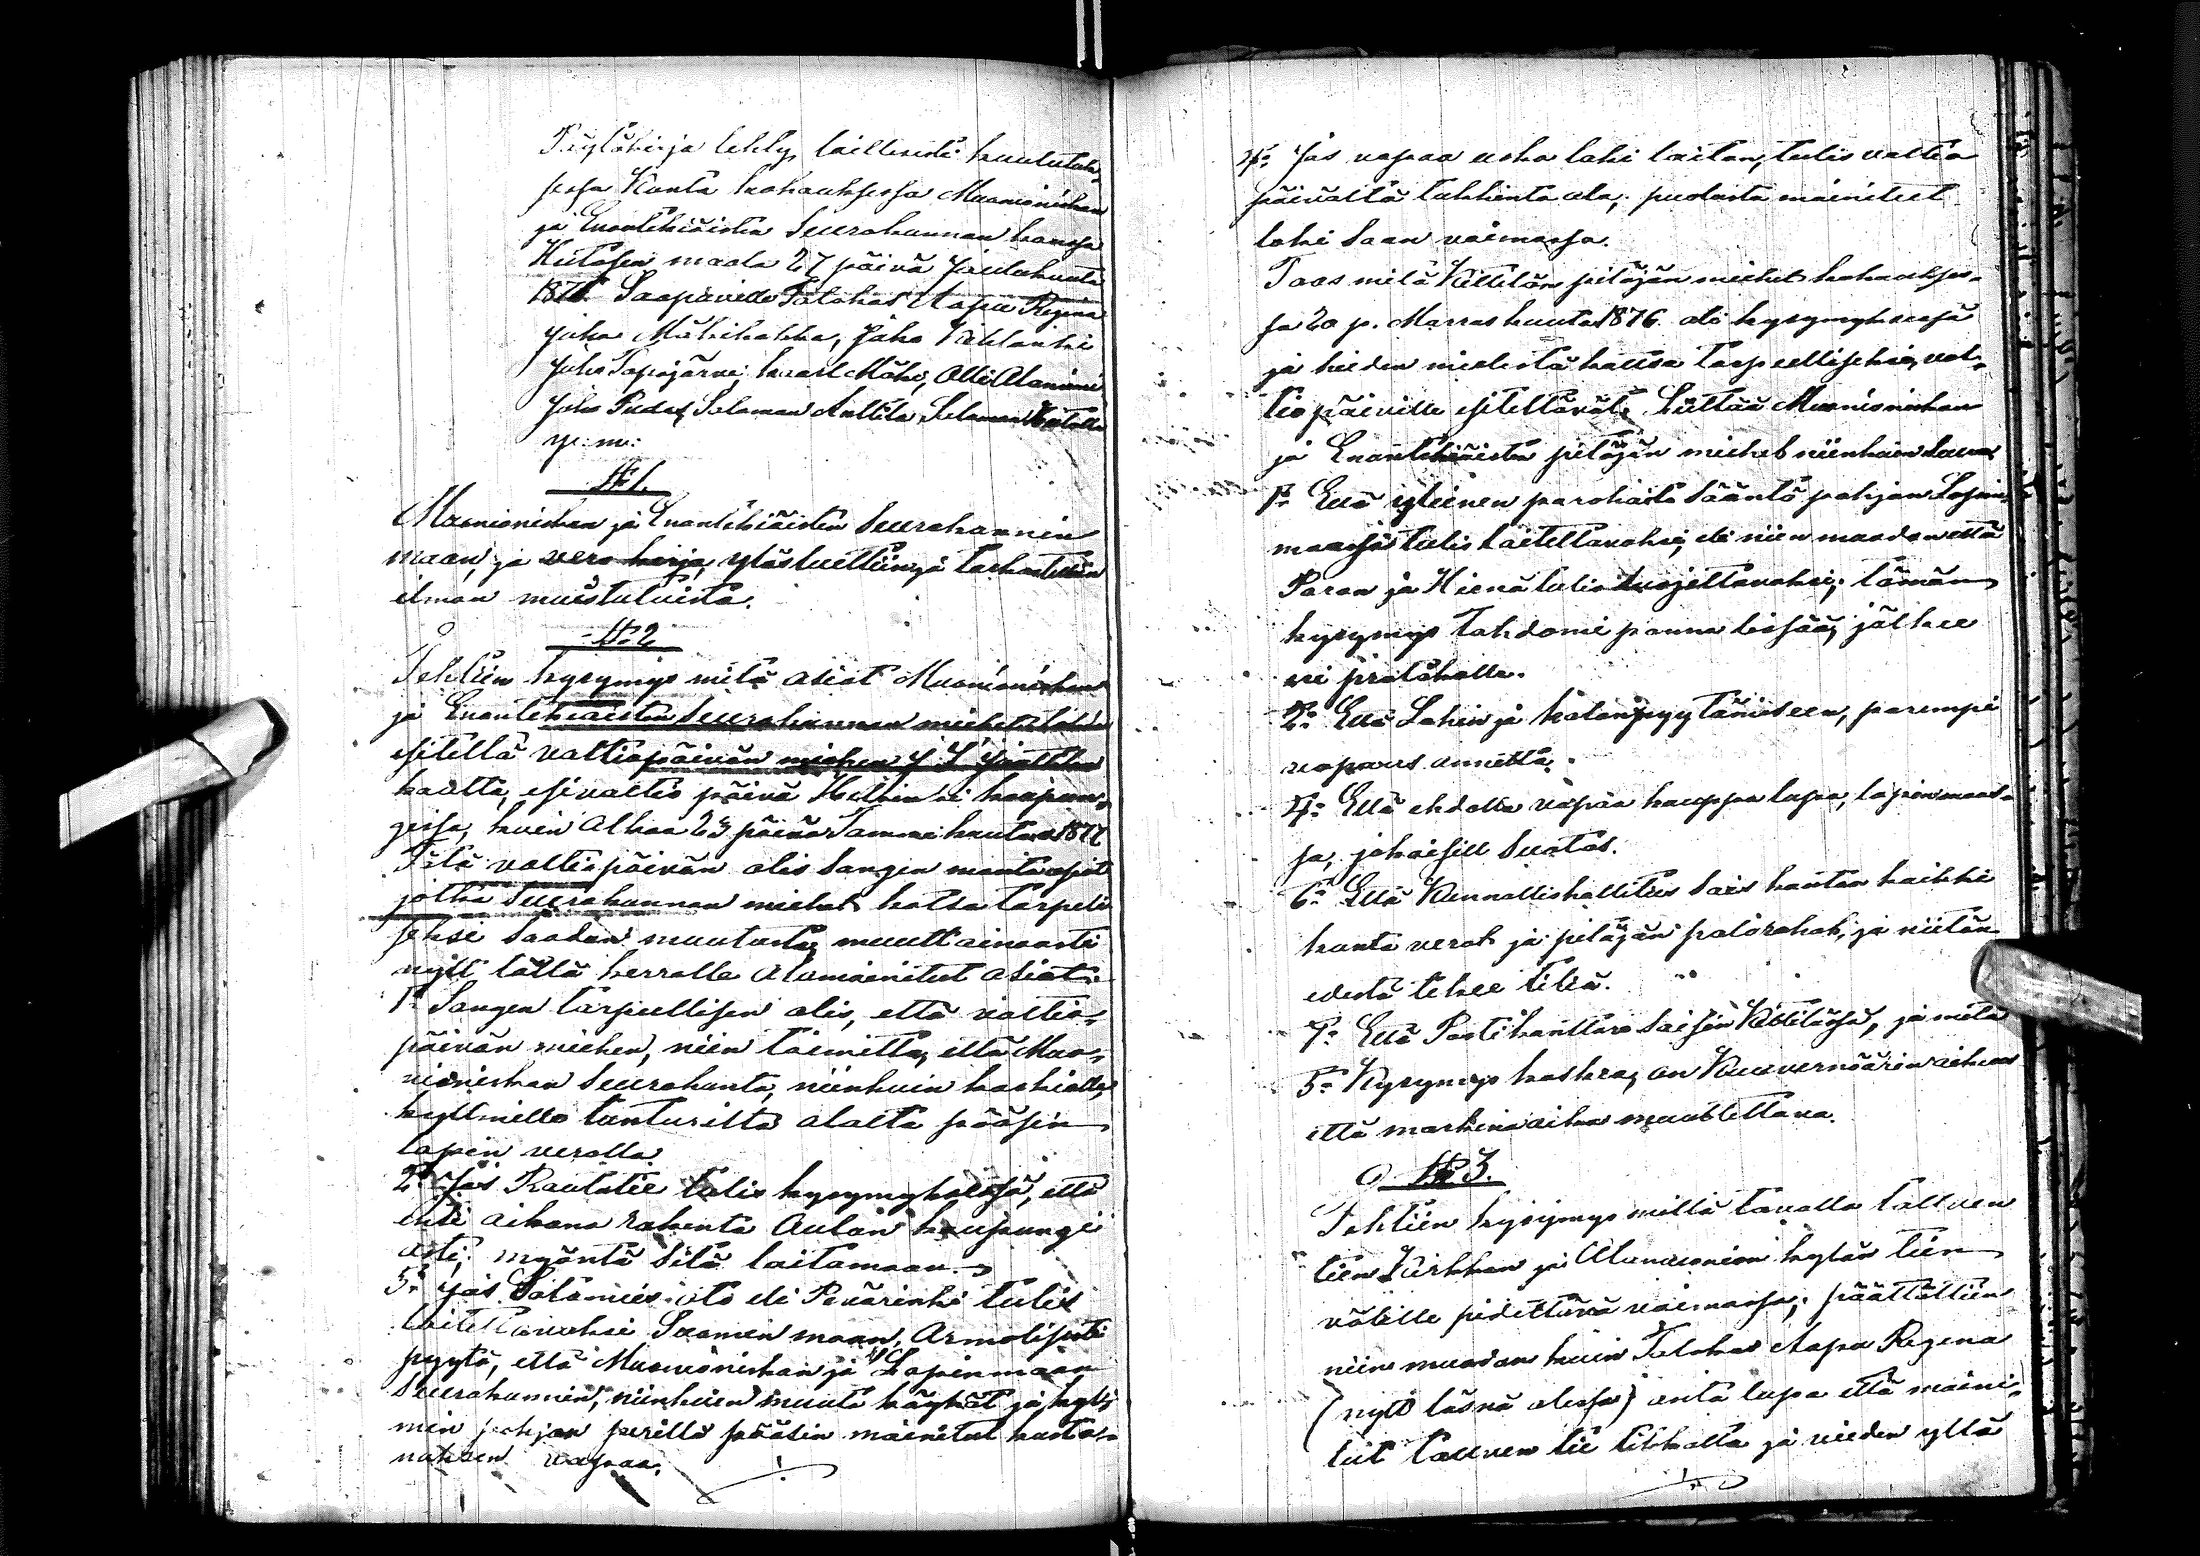 Pöytäkirja tehty, laillisesti kuulutetus,
sesa Kunta kokouksesa Muonionniskan
ja Enontekiäisten Seurakunnan kansa
Hietasen maala 27 päivä Joulukuuta
1876. Saapuville Talokas Aapu Regina
Juho Mäkikokko, Juho Kihlanki
Juho Tapojärvi, Kaarl Mäki, Olli Alamuonio
Juho Puda, Salaman Anttila, Salaman Hietala
y: m:
N:o 1.
Muonionniskan ja Enontekiäisten Seurakunnin
maan, ja vero kirja, ylösluettiin ja tarkastettiin
ilman muistutuista.
N:o 2
Tehtiin kysymys mitä asiat Muonionniskan
ja Enontekiäisten Seurakunnan miehet tahto
esitellä valtiopäivän miehen
kautta, esi valtio päivä Helsin ki kaupun,
gissa, kuin Alkaa 23 päivä Tammi kuuta 1877
Tälä valtiopäivän olis Sangen monta asiat
jotka Seurakunnan miehet katsa tarpeli
seksi Saadan muutosta, muutt ainoasti
nytt tällä kerralla Alamainitut Asiat:
1:o Sangen tarpeellisen olis, että valtio,
päivän miehen, niin toimitta, että Muo,
nionniskan Seurakunta, niinkuin kaikialla
kyllmille tunturilta alalta pääsin
lapin verolla.
2:o Jos Rautatie tulis kysymyksesä, että
ensi aikana rakenta Aulun kaupungi
asti, myöntä Sitä laitamaan.
3:o Jos Sotamies: oto eli Pevärinki tulis
laitettavaksi Suomen maan, Armolisesti
pyytä, että Muonionniskan ja Lapinmaan
Seurakunnin, niinkuin muuta köyhät ja kyl,
min pohjan perillä pääsin mainitut kustan
nuksen vapaa.
4:o Jos vapaa usko laki laitan, tulis valtio
päivältä tutkinta ala; puolusta mainitut
laki Saan voimassa.
Taas mitä Kittilän pitäjän miehet kokoukses,
sa 20 p. Marras kuuta 1876. oli kysymyksessä
ja heiden mielestä katsa tarpeelliseksi, val,
tiopäiville esiteltävät; Liittää Muonionniskan
ja Enontekiäisten pitäjän miehet niinkuin Seura
1:o Että yleinen parahasta Sääntö pohjan Lapin,
maassa tulis laitettavaksi, eli niin muodon että
Poron ja Hienä tulis suojeltavaksi; tämän
kysymys tahdomi panna lissää, jälkee
vi prätäkolle.
2:o Että Lohin ja kalanpyytämiseen, parempi
vapaus annetta.
4:o Että ehdolla vapaa kauppa lupa, lapin maas,
sa, jokaisill Suotas.
6:o Että Kunnallishallitus Sais kantaa kaikki
kunta verot ja pitäjän palorahat, ja niitän
edestä tekee tiliä.
7:o Että Posti kanttori Saisin Kittilässä, ja mitä
5:o Kysymys koskee, on Kuuvernöörin aikaa
että markina aikaa muutettava.
N:o 3.
Tehtiin kysymys millä tavalla talluen
tien Kirkkon ja Alamuonion kylän tien
välille pidettävä voimassa; päättättiin
niin muodon kuin Talokas Aapu Regina
(nytt läsnä olessa) anta lupa että maini,
tut talluen tie tikkatta ja vieden yltä